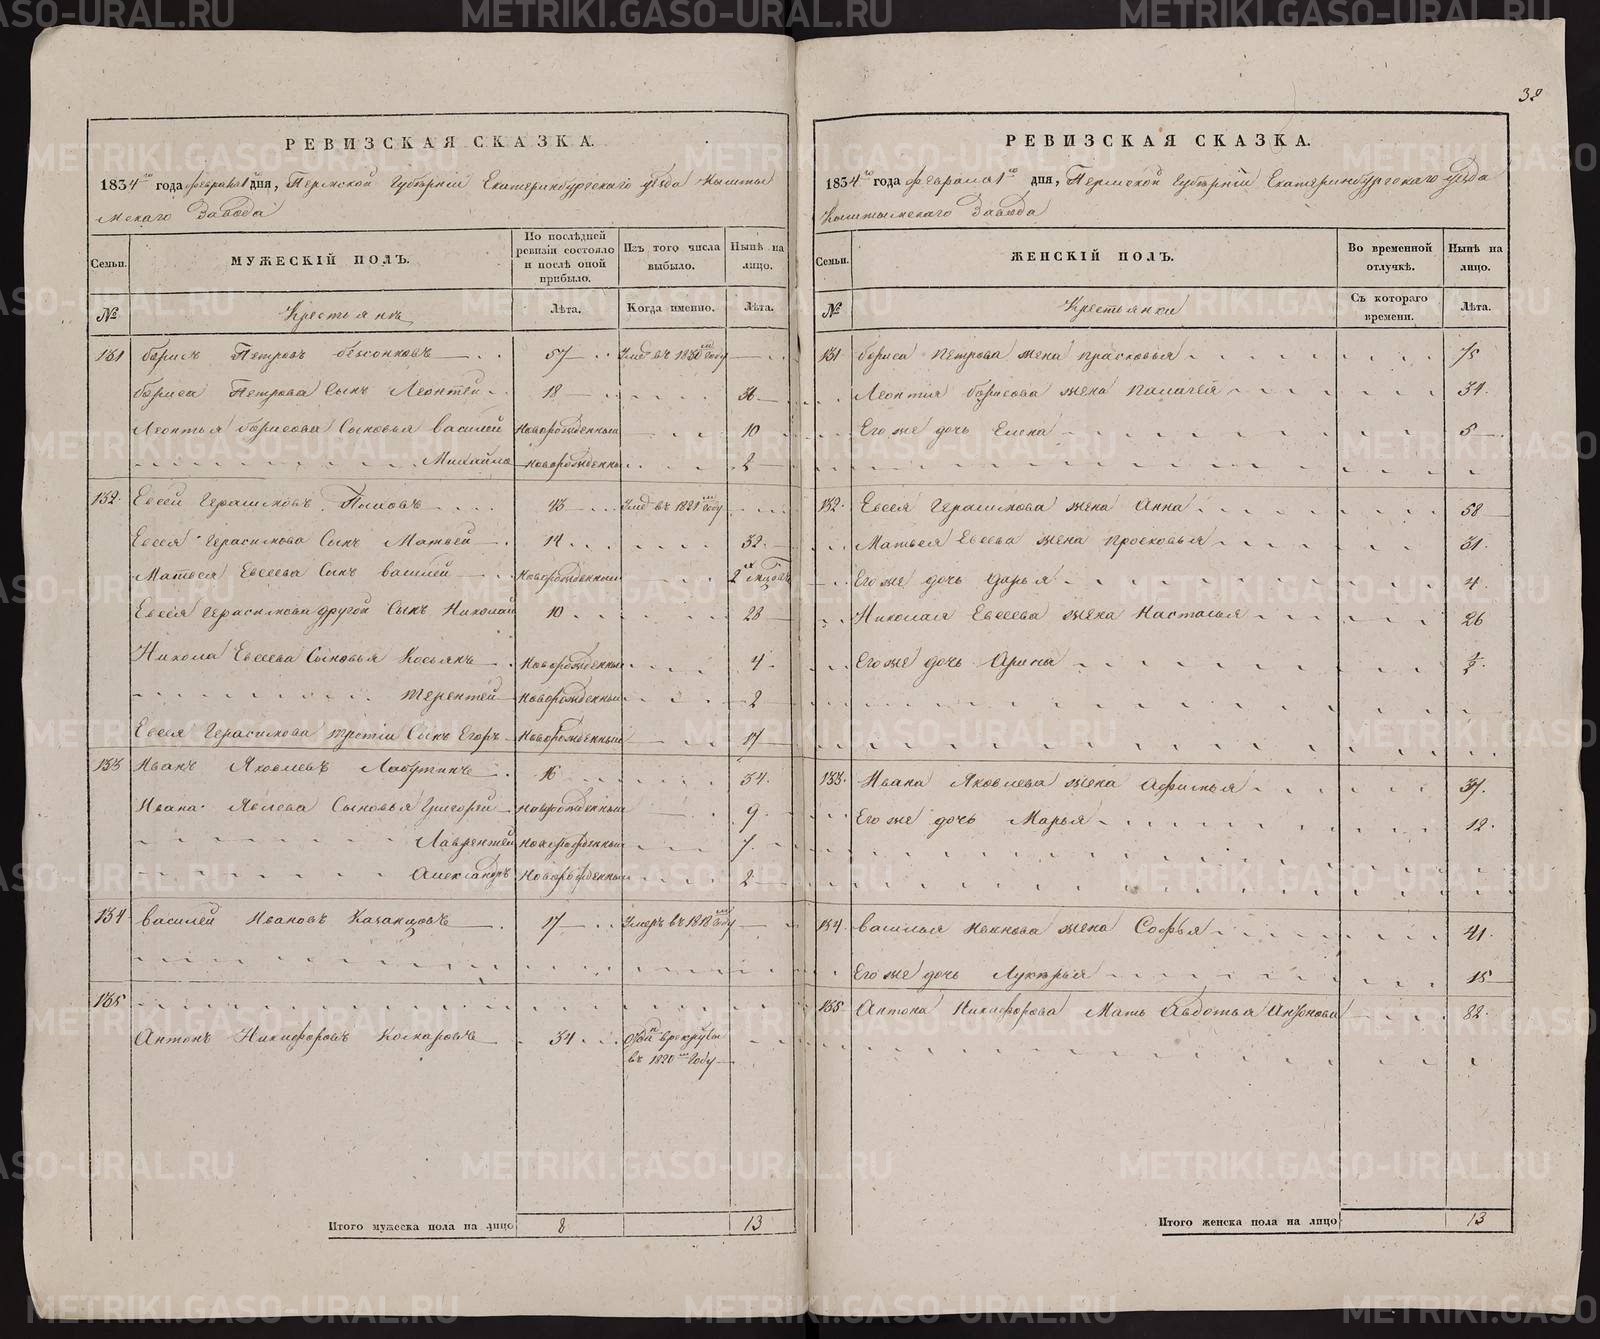 32
РЕВИЗСКАЯ СКАЗКА.
1834го года февраля 1 дня, Пермской Губернiи Екатеринбургскаго уѣзда Кышты
мскаго Завода
Семьи.
МУЖЕСКIЙ ПОЛЪ.
По послѣдней ревизiи состояло и послѣ оной прибыло.
Изъ того числа выбыло.
Нынѣ на лицо.
№
Крестьянъ
Лѣта.
Когда именно.
Лѣта.
131 Борисъ Петровъ 57 Умеръ въ 1830м году
Бориса Петрова Сынъ Леонтей 18 36
Леонтья Борисова Сыновья Василей Новорожденный 10
Михайла новорожденны 2
132 Евсей Герасимовъ Пыховъ 43 Умеръ въ 1821м году
Евсея Герасимова Сынъ Матвей 14 32
Матвея Евсеева Сынъ Василей Новорожденный 2х мѣсцовъ
Евсея Герасимова другой Сынъ Николай 10 28
Никола Евсеева Сыновья Косьянъ Новорожденный 4
Терентей Новорожденный 2
Евсея Герасимова третiй Сынъ Егоръ Новорожденный 17
133 Иванъ Яковлевъ Лабутинъ 16 34
Ивана Явлева Сыновья Григорiй Новорожденный 9
Лаврентей новорожденный 7
Александръ Новорожденный 2
134 Василей Ивановъ Казанцовъ 17 Умеръ въ 1818м году
135
Антонъ Никифоровъ Комаровъ 34 Отдан в рекруты
въ 1820м году
Итого мужеска пола на лицо 8 13
РЕВИЗСКАЯ СКАЗКА.
1834го года февраля 1го дня, Пермской Губернiи Екатеринбургскаго уѣзда
Кыштымскаго Завода
Семьи.
ЖЕНСКIЙ ПОЛЪ.
Во временной отлучкѣ.
Нынѣ на лицо.
№
Крестьянки
Съ котораго времени.
Лѣта.
131 Бориса Петрова жена Прасковья 75
Леонтия Борисова жена Палагея 34
Его же дочь Елена 5
132 Евсея Герасимова жена Анна 58
Матвея Евсеева жена Просковья 31
Его же дочь Дарья 4
Николая Евсеева жена Настасья 26
Его же дочь Арина ½
133 Ивана Яковлева жена Афимья 37
Его же дочь Марья 12
134 Василья Иванова жена Софья 41
Его же дочь Лукерья 15
135 Антона Никифорова Мать Авдотья 82
Итого женска пола на лицо 13
METRIKI.GASO-URAL.RU